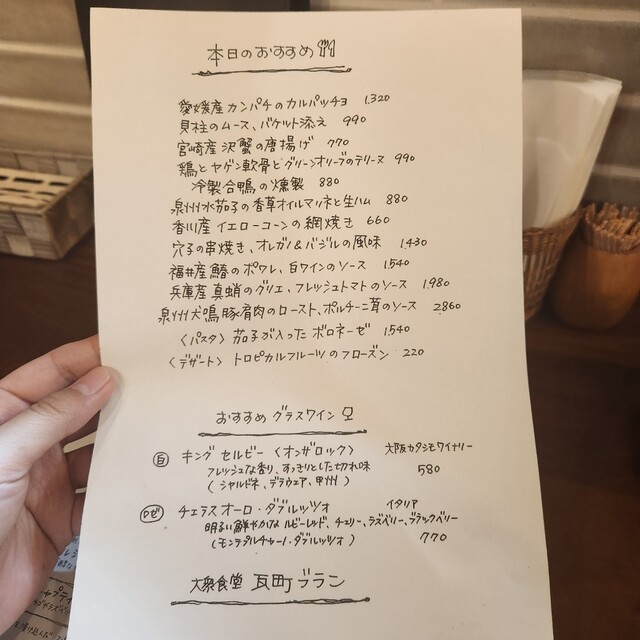 本日のおすすめ
愛媛産カンパチのカルパッチョ 1.320
貝柱のムース、バケット添え 990
宮崎産沢蟹の唐揚げ 770
鶏とヤゲン軟骨とグリーンオリーブのテリーヌ 990
冷製合鴨の燻製 880
泉州水茄子の香草オイルマリネと生ハム 880
香川産イエローコーンの網焼き 660
穴子の串焼き、オレガノ&バジルの風味 1.430
福井産鰆のポワレ、白ワインのソース 1.540
兵庫産真蛸のグリエ、フレッシュトマトのソース 1.980
泉州犬鳴豚肩肉のロースト、ポルチーニ茸のソース 2.860
〈パスタ〉茄子が入ったボロネーゼ 1.540
〈デザート〉トロピカルフルーツのフローズン 220
おすすめグラスワイン
白 キングセルビー〈オンザロック〉 大阪カタシモワイナリー
フレッシュな香り、すっきりとした切れ味 580
(シャルドネ、デラウェア、甲州)
ロゼ チェラスオーロ・ダブルッツォ イタリア
明るい鮮やかなルビーレッド、チェリー、ラズベリー、ブラックベリー
(モンテプルチャーノ・ダブルッツォ) 770
大衆食堂 瓦町ブラン